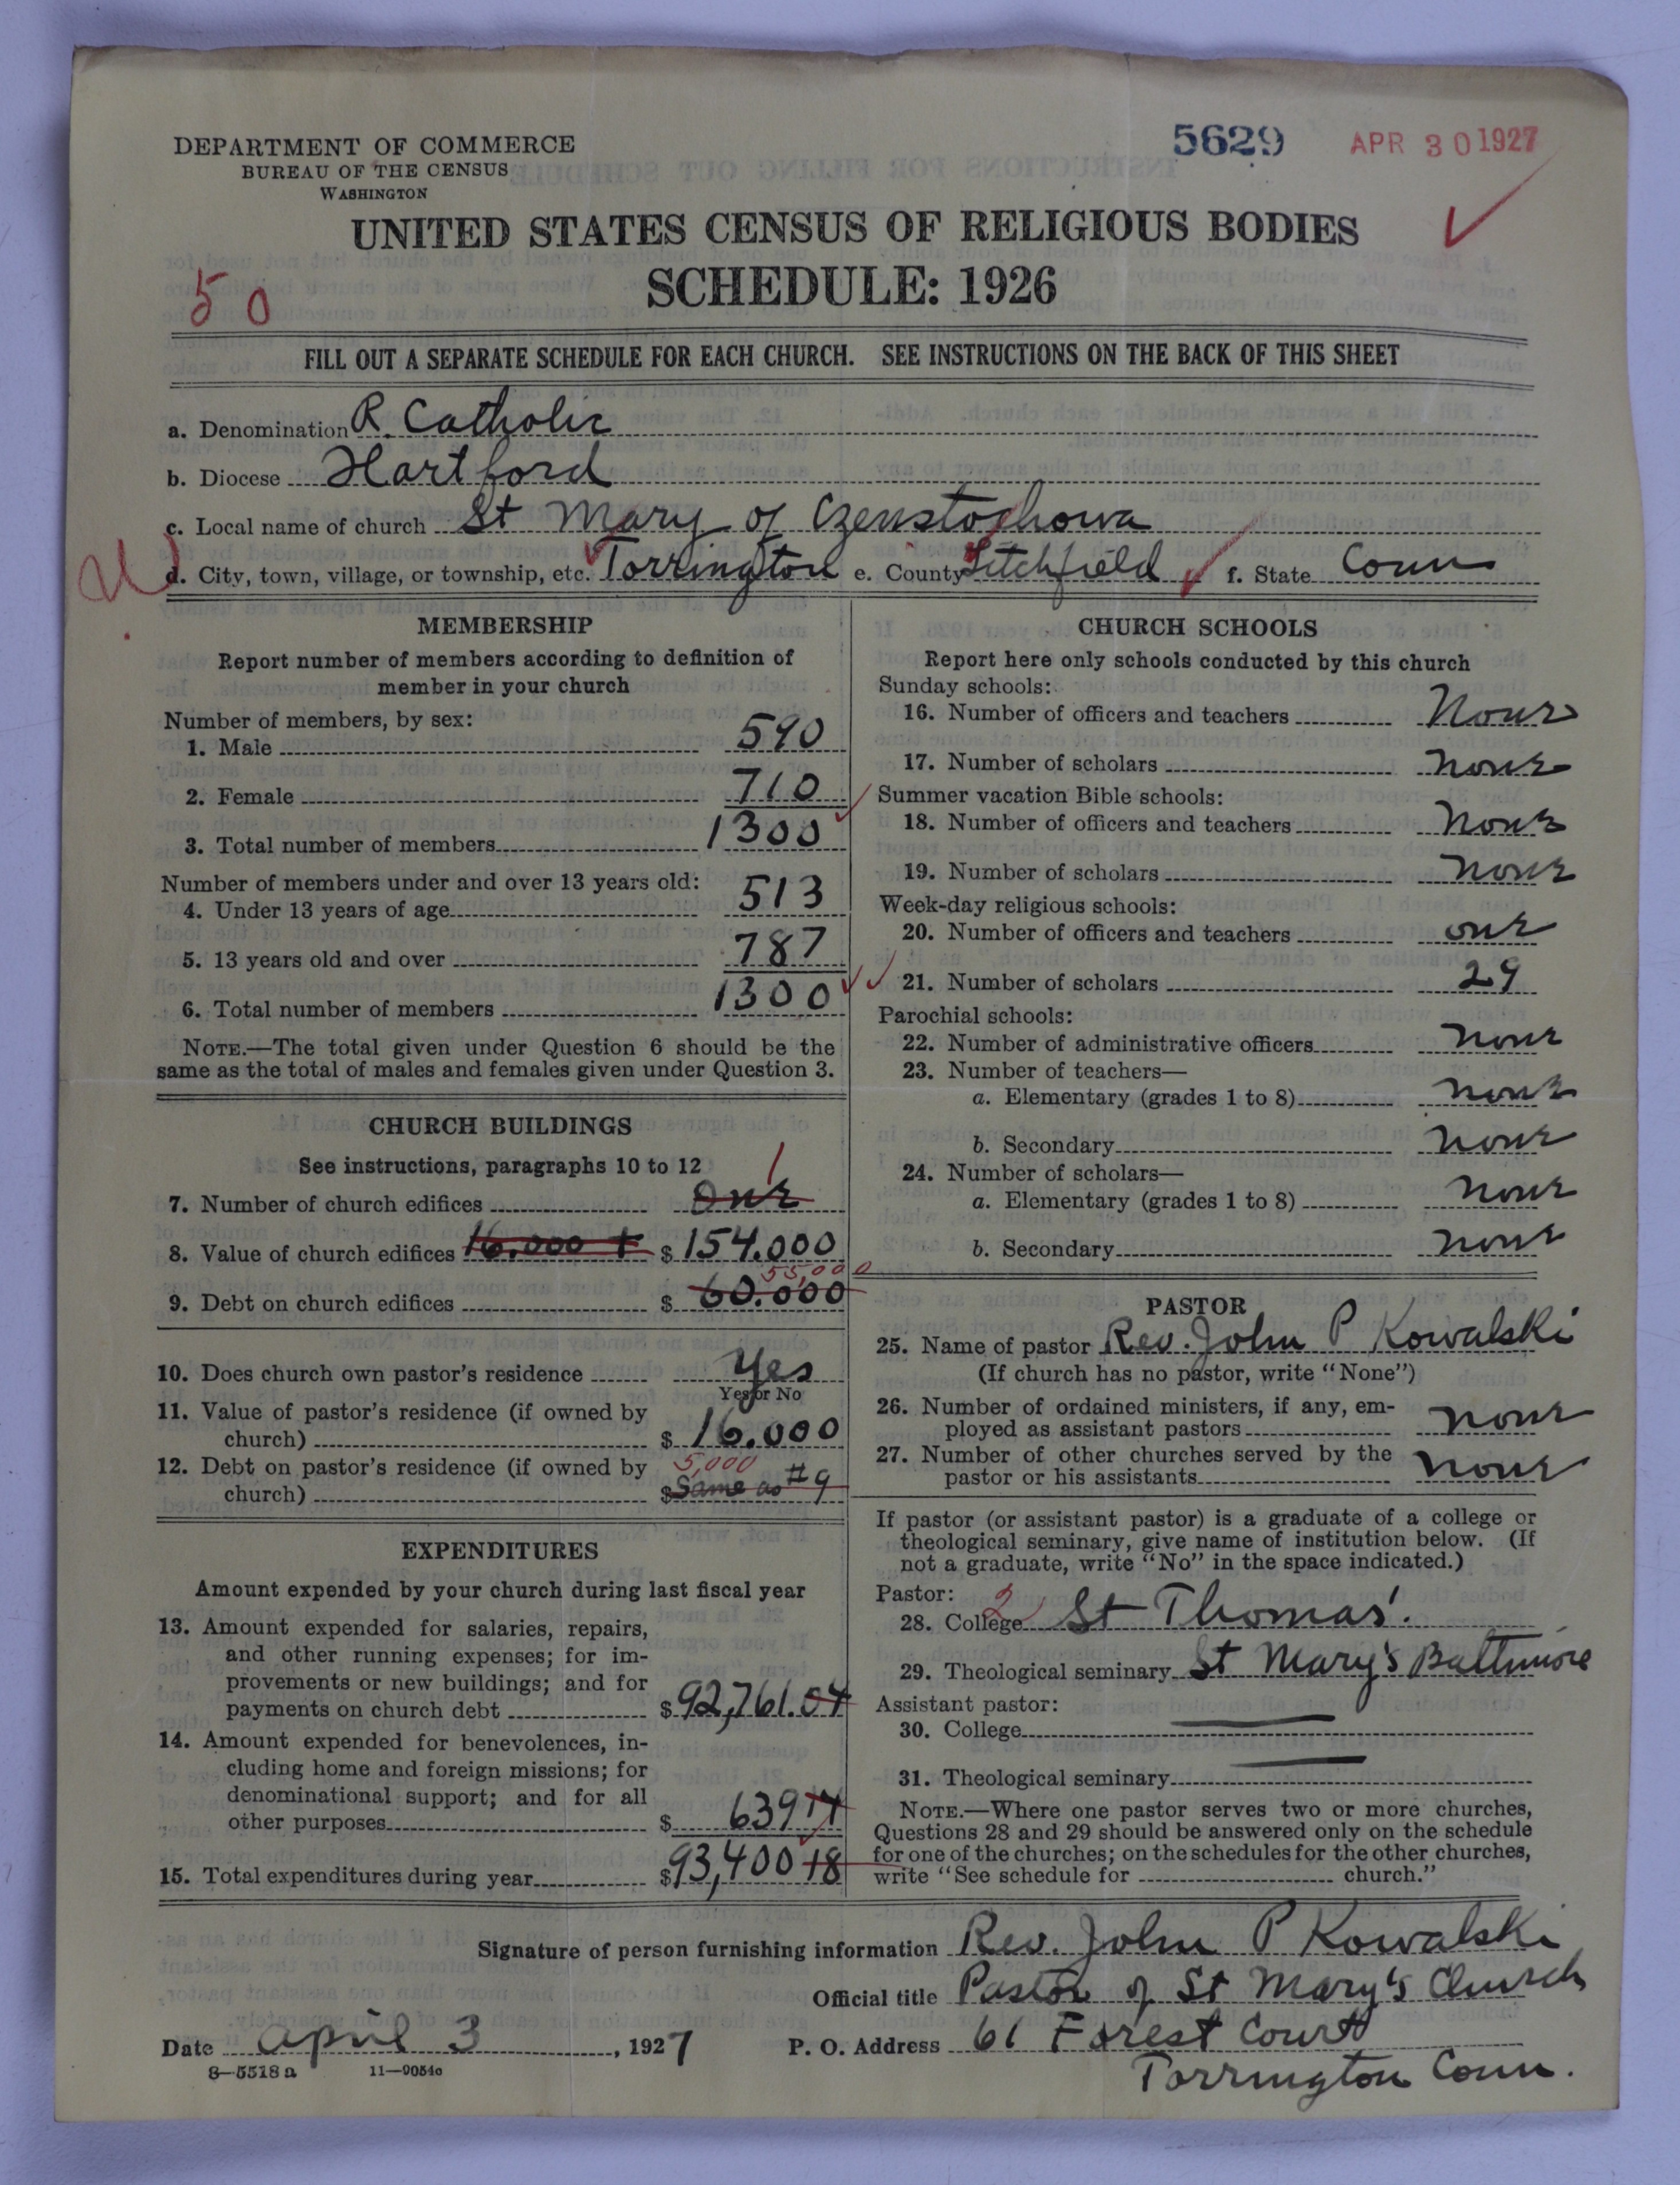 DEPARTMENT OF COMMERCE
BUREAU OF THE CENSUS
WASHINGTON
5629 APR 30 1927
UNITED STATES CENSUS OF RELIGIOUS BODIES
SCHEDULE: 1926
50
FILL OUT A SEPARATE SCHEDULE FOR EACH CHURCH. SEE INSTRUCTIONS ON THE BACK OF THIS SHEET
a. Denomination R. Catholic
b. Diocese Hartford
c. Local name of church St Mary of Czenstochowa
d. City, town, village, or township, etc. Torrington e. County Litchfield f. State Conn
MEMBERSHIP
Report number of members according to definition of
member in your church
Number of members, by sex:
1. Male 590
2. Female 710
3. Total number of members 1300
Number of members under and over 13 years old:
4. Under 13 years of age 513
5. 13 years old and over 787
6. Total number of members 1300
NOTE.—The total given under Question 6 should be the
same as the total of males and females given under Question 3.
CHURCH BUILDINGS
See instructions, paragraphs 10 to 12
1
7. Number of church edifices One
8. Value of church edifices 16.000 + $ 154.000
55,000
9. Debt on church edifices $ 60.000
10. Does church own pastor's residence Yes
Yes or No
11. Value of pastor's residence (if owned by
church) $ 16.000
12. Debt on pastor's residence (if owned by 5,000
church) $ Same as #9
EXPENDITURES
Amount expended by your church during last fiscal year
13. Amount expended for salaries, repairs,
and other running expenses; for im-
provements or new buildings; and for
payments on church debt $ 92,761.04
14. Amount expended for benevolences, in-
cluding home and foreign missions; for
denominational support; and for all
other purposes $ 639 14
15. Total expenditures during year $ 93,400 18
CHURCH SCHOOLS
Report here only schools conducted by this church
Sunday schools:
16. Number of officers and teachers None
17. Number of scholars none
Summer vacation Bible schools:
18. Number of officers and teachers none
19. Number of scholars none
Week-day religious schools:
20. Number of officers and teachers one
21. Number of scholars 29
Parochial schools:
22. Number of administrative officers none
23. Number of teachers—
a. Elementary (grades 1 to 8) none
b. Secondary none
24. Number of scholars—
a. Elementary (grades 1 to 8) none
b. Secondary none
PASTOR
25. Name of pastor Rev. John P Kowalski
(If church has no pastor, write "None")
26. Number of ordained ministers, if any, em-
ployed as assistant pastors none
27. Number of other churches served by the
pastor or his assistants none
If pastor (or assistant pastor) is a graduate of a college or
theological seminary, give name of institution below. (If
not a graduate, write "No" in the space indicated.)
Pastor:
28. College 2 St Thomas'.
29. Theological seminary St Mary's Baltimore
Assistant pastor:
30. College
31. Theological seminary
NOTE.—Where one pastor serves two or more churches,
Questions 28 and 29 should be answered only on the schedule
for one of the churches; on the schedules for the other churches,
write "See schedule for church."
Signature of person furnishing information Rev. John P Kowalski
Official title Pastor of St Mary's Church
Date April 3, 1927 P. O. Address 61 Forest Court
Torrington Conn.
8—5518 a 11—9054c